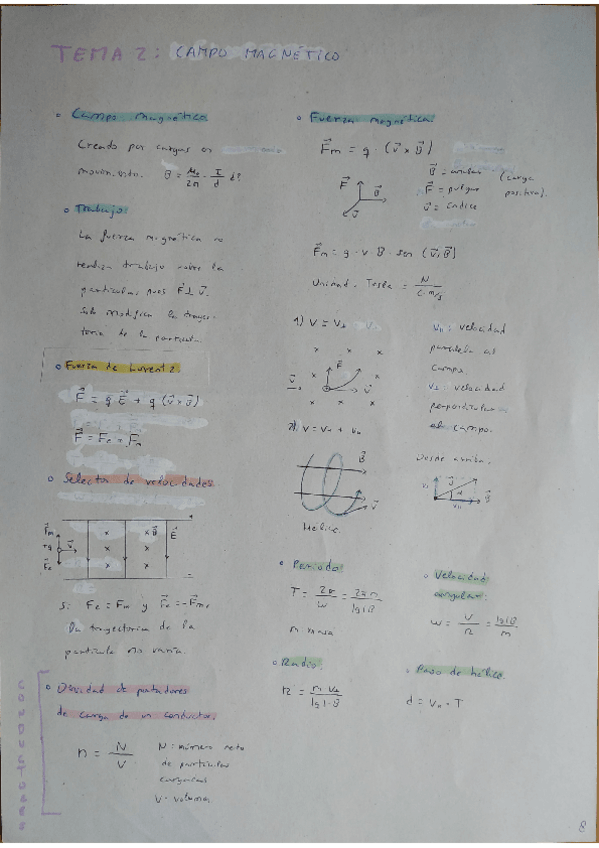 TEMA 2: CAMPO MAGNÉTICO
Campo magnético
Creado por cargas en
movimiento. B = μ₀/2π · I/d
Trabajo:
La fuerza magnética no
realiza trabajo sobre la
partícula, pues F⊥v.
Solo modifica la trayec-
toria de la partícula.
Fuerza de Lorentz:
F = q E + q (v x B)
F = Fe + Fm
Selector de velocidades
Fm
+q v
Fe
B
E
Si Fe = Fm y Fe = -Fm,
la trayectoria de la
partícula no varía.
Densidad de portadores
de carga de un conductor:
n = N/V
N: número neto
de partículas
cargadas
V: volumen
Fuerza magnética:
Fm = q · (v x B)
F B
v
B = anular (carga
F = pulgar positiva).
v = índice
Fm = q · v · B · sen (v, B)
Unidad: Tesla = N/C·m/s
1) V = V⊥
x x x
F
v
v
x x x
V∥: velocidad
paralela al
campo.
V⊥: velocidad
perpendicular
al campo.
2) V = V∥ + V⊥
B
v
Hélice.
Desde arriba.
V⊥ v α B
V∥
Periodo:
T = 2π/ω = 2πm/|q|B
m: masa
Velocidad
angular:
ω = V/R = |q|B/m
Radio:
R = m V⊥/|q|·B
Paso de hélice:
d = V∥ · T
8